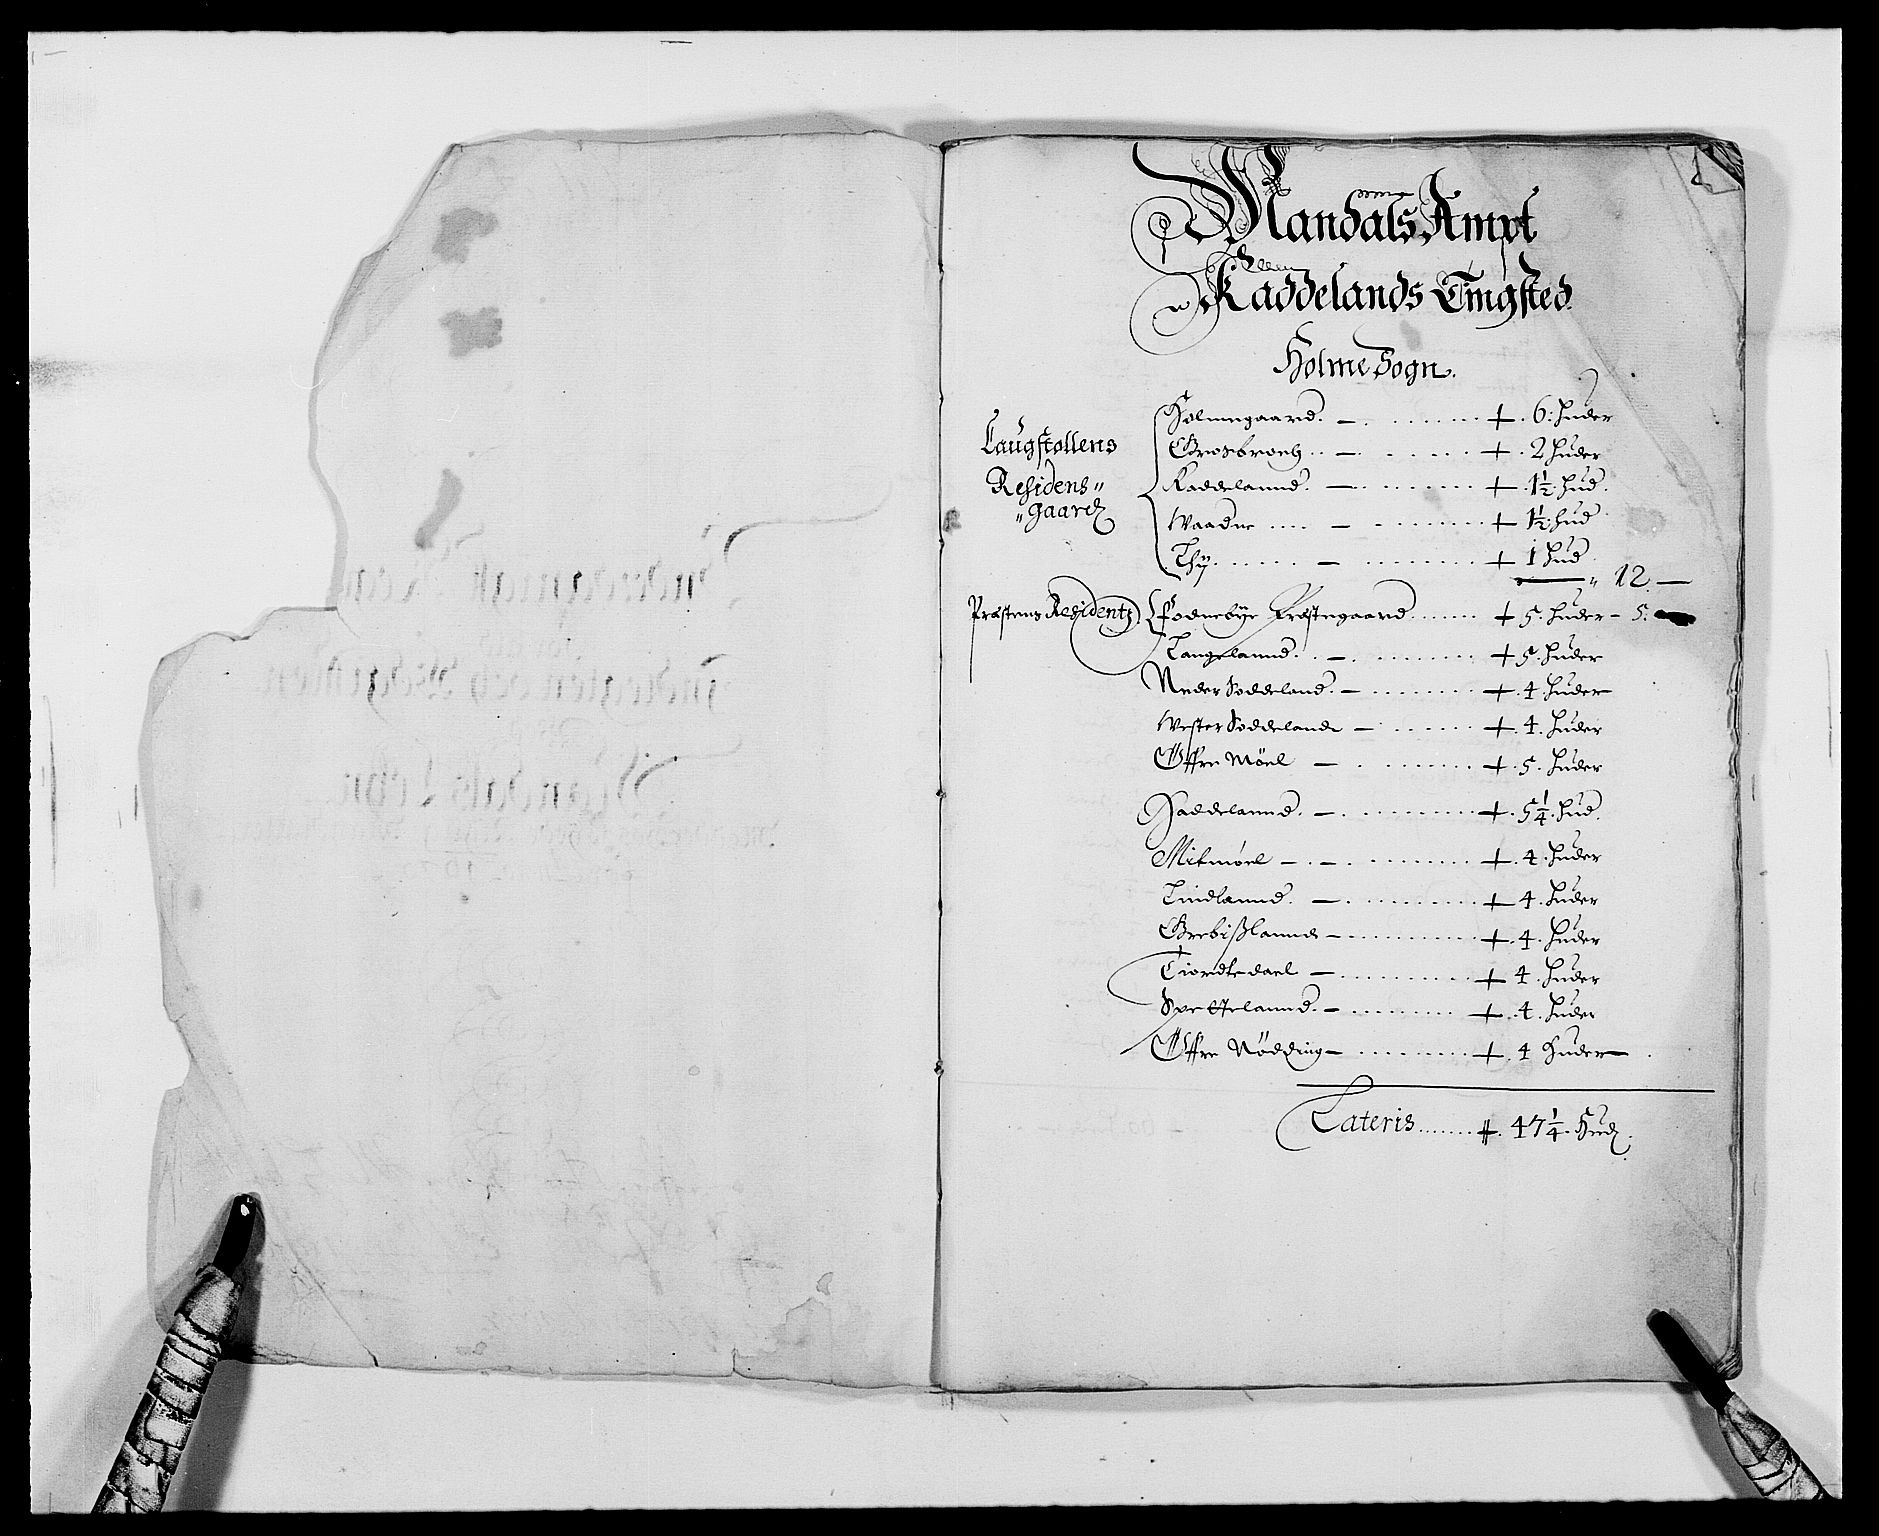 1
Mandals Ampt
Kaddelands Tingsted
Holme Sogn.
Laugstollens
Residens
gaard
Holmegaard + 6: huder
Grosbroch + 2 huder
Kaddelannd + 1½ hud
Waadne + 1½ hud
Thÿ + 1 hud
12
Præstens Residentz
Fodnebÿe Præstegaard + 5. huder - 5.
Langelannd + 5. huder
Neder Soddeland + 4. huder
Wester Soddeland + 4. huder
Öffre Möel + 5. huder
Haddelannd + 5¼ hud
Mitmöel + 4. huder
Lindlannd + 4. huder
Grebißlannd + 4. huder
Tiordtedael + 4. huder
Spettelannd + 4. huder
Öffre Nödding + 4 huder
Lateris 47¼ Hud